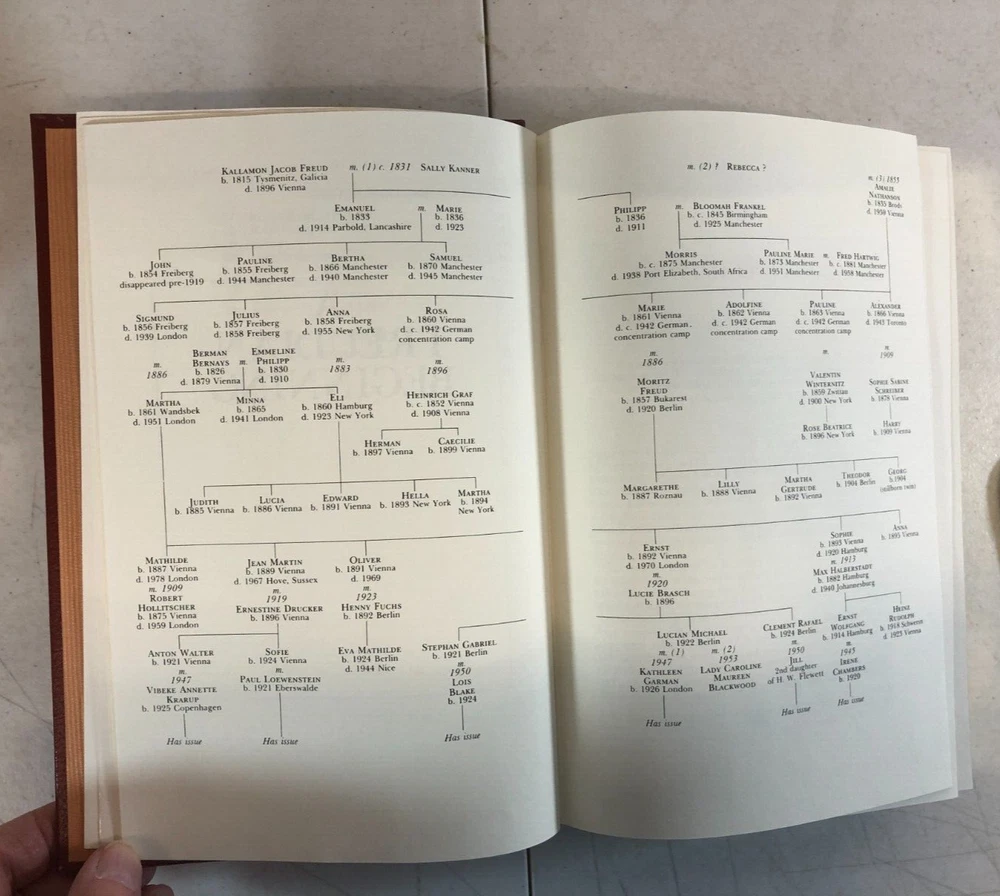 KALLAMON JACOB FREUD
b. 1815 Tysmenitz, Galicia
d. 1896 Vienna
m. (1) c. 1831 SALLY KANNER
EMANUEL
b. 1833
d. 1914 Parbold, Lancashire
m.
MARIE
b. 1836
d. 1923
JOHN
b. 1854 Freiberg
disappeared pre-1919
PAULINE
b. 1855 Freiberg
d. 1944 Manchester
BERTHA
b. 1866 Manchester
d. 1940 Manchester
SAMUEL
b. 1870 Manchester
d. 1945 Manchester
SIGMUND
b. 1856 Freiberg
d. 1939 London
JULIUS
b. 1857 Freiberg
d. 1858 Freiberg
ANNA
b. 1858 Freiberg
d. 1955 New York
ROSA
b. 1860 Vienna
d. c. 1942 German
concentration camp
m.
1886
BERMAN
BERNAYS
b. 1826
d. 1879 Vienna
m.
EMMELINE
PHILIPP
b. 1830
d. 1910
m.
1883
m.
1896
MARTHA
b. 1861 Wandsbek
d. 1951 London
MINNA
b. 1865
d. 1941 London
ELI
b. 1860 Hamburg
d. 1923 New York
HEINRICH GRAF
b. c. 1852 Vienna
d. 1908 Vienna
HERMAN
b. 1897 Vienna
CAECILIE
b. 1899 Vienna
JUDITH
b. 1885 Vienna
LUCIA
b. 1886 Vienna
EDWARD
b. 1891 Vienna
HELLA
b. 1893 New York
MARTHA
b. 1894
New York
MATHILDE
b. 1887 Vienna
d. 1978 London
m. 1909
ROBERT
HOLLITSCHER
b. 1875 Vienna
d. 1959 London
JEAN MARTIN
b. 1889 Vienna
d. 1967 Hove, Sussex
m.
1919
ERNESTINE DRUCKER
b. 1896 Vienna
OLIVER
b. 1891 Vienna
d. 1969
m.
1923
HENNY FUCHS
b. 1892 Berlin
ANTON WALTER
b. 1921 Vienna
m.
1947
VIBEKE ANNETTE
KRARUP
b. 1925 Copenhagen
Has issue
SOFIE
b. 1924 Vienna
m.
PAUL LOEWENSTEIN
b. 1921 Eberswalde
Has issue
EVA MATHILDE
b. 1924 Berlin
d. 1944 Nice
STEPHAN GABRIEL
b. 1921 Berlin
m.
1950
LOIS
BLAKE
b. 1924
Has issue
m. (2) ? REBECCA ?
m. (3) 1855
AMALIE
NATHANSON
b. 1835 Brody
d. 1930 Vienna
PHILIPP
b. 1836
d. 1911
m.
BLOOMAH FRANKEL
b. c. 1845 Birmingham
d. 1925 Manchester
MORRIS
b. c. 1875 Manchester
d. 1938 Port Elizabeth, South Africa
PAULINE MARIE
b. 1873 Manchester
d. 1951 Manchester
m.
FRED HARTWIG
b. c. 1881 Manchester
d. 1958 Manchester
MARIE
b. 1861 Vienna
d. c. 1942 German
concentration camp
ADOLFINE
b. 1862 Vienna
d. c. 1942 German
concentration camp
PAULINE
b. 1863 Vienna
d. c. 1942 German
concentration camp
ALEXANDER
b. 1866 Vienna
d. 1943 Toronto
m.
1886
m.
m.
1909
MORITZ
FREUD
b. 1857 Bukarest
d. 1920 Berlin
VALENTIN
WINTERNITZ
b. 1859 Zwittau
d. 1900 New York
SOPHIE SABINE
SCHREIBER
b. 1878 Vienna
ROSE BEATRICE
b. 1896 New York
HARRY
b. 1909 Vienna
MARGARETHE
b. 1887 Roznau
LILLY
b. 1888 Vienna
MARTHA
GERTRUDE
b. 1892 Vienna
THEODOR
b. 1904 Berlin
GEORG
b. 1904
(stillborn twin)
ERNST
b. 1892 Vienna
d. 1970 London
m.
1920
LUCIE BRASCH
b. 1896
SOPHIE
b. 1893 Vienna
d. 1920 Hamburg
m. 1913
MAX HALBERSTADT
b. 1882 Hamburg
d. 1940 Johannesburg
ANNA
b. 1895 Vienna
LUCIAN MICHAEL
b. 1922 Berlin
m. (1)
1947
KATHLEEN
GARMAN
b. 1926 London
Has issue
m. (2)
1953
LADY CAROLINE
MAUREEN
BLACKWOOD
CLEMENT RAFAEL
b. 1924 Berlin
m.
1950
JILL
2nd daughter
of H. W. Flewett
Has issue
ERNST
WOLFGANG
b. 1914 Hamburg
m.
1945
IRENE
CHAMBERS
b. 1920
Has issue
HEINZ
RUDOLPH
b. 1918 Schwerin
d. 1923 Vienna